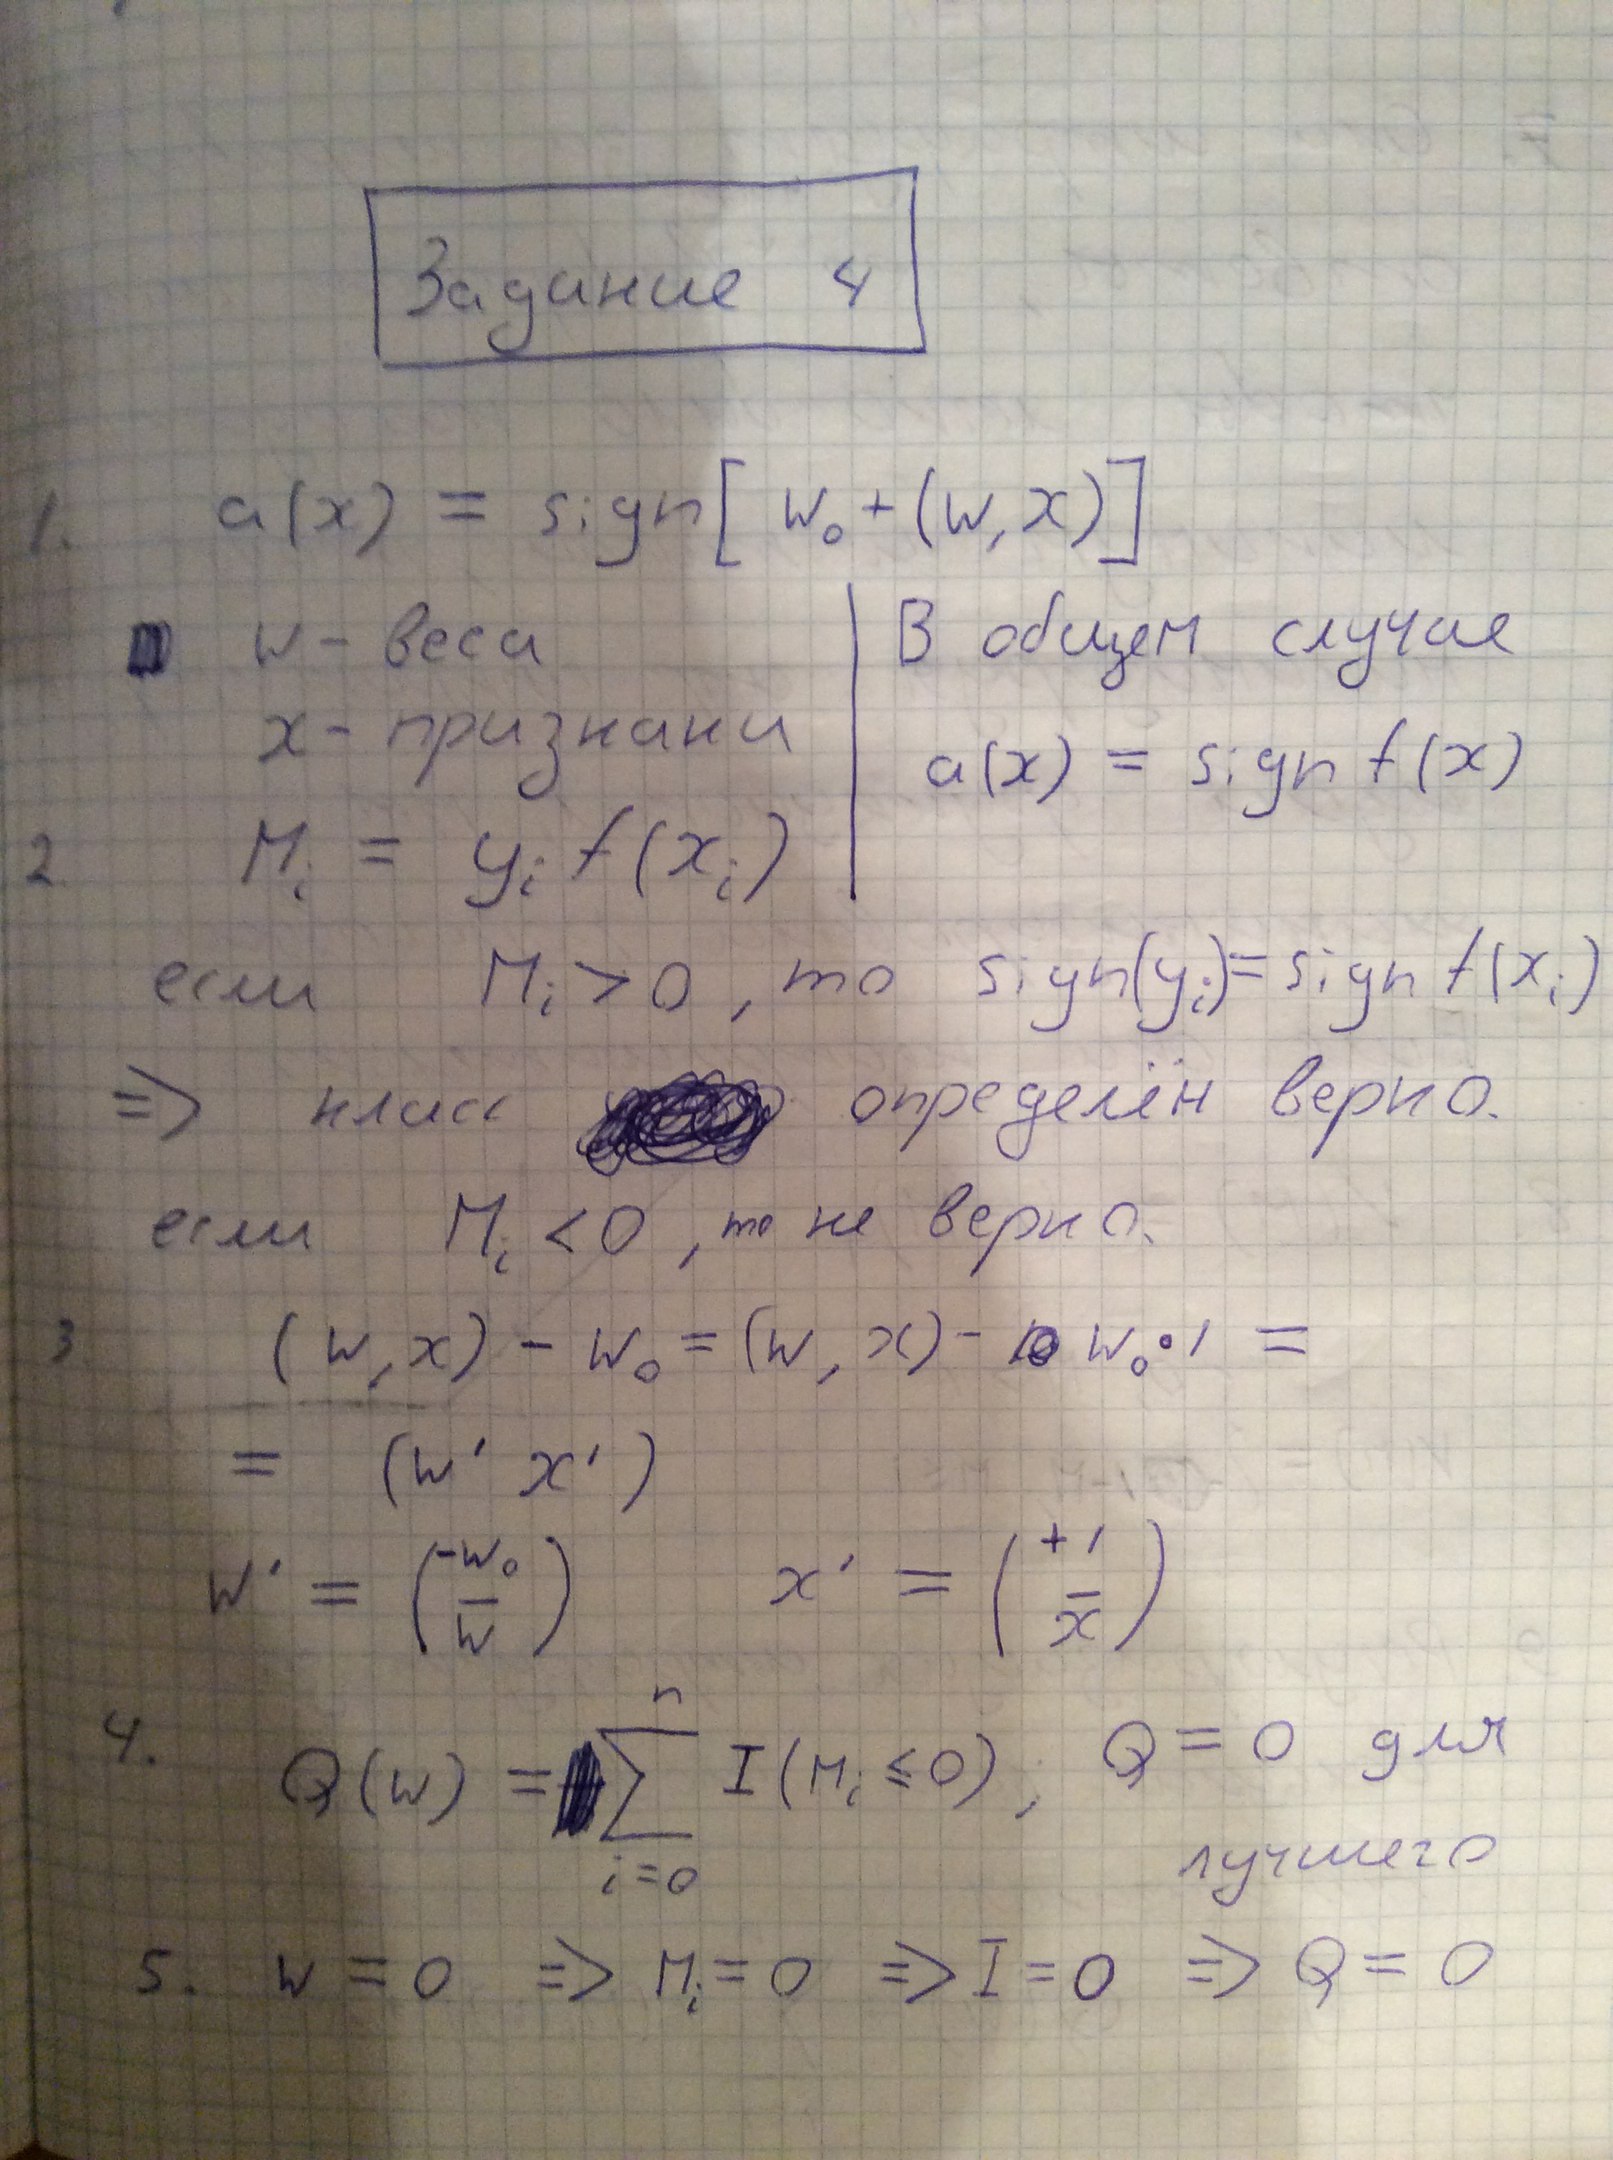 Задание 4
1. a(x) = sign[w₀ + (w, x)]
w - веса
x - признаки
В общем случае
a(x) = sign f(x)
2 Mᵢ = yᵢ f(xᵢ)
если Mᵢ > 0, то sign(yᵢ) = sign f(xᵢ)
=> класс определён верно.
если Mᵢ < 0, то не верно.
3 (w, x) - w₀ = (w, x) - w₀ · 1 =
= (w' x')
w' = (-w₀ / w) x' = (+1 / x)
4. Q(w) = ∑ⁿᵢ₌₀ I(Mᵢ ≤ 0); Q = 0 для
лучшего
5. w = 0 => Mᵢ = 0 => I = 0 => Q = 0